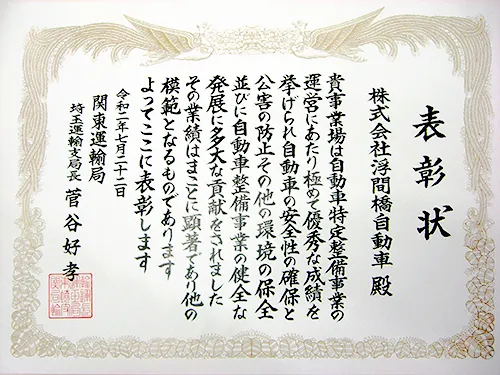 表彰状
株式会社浮間橋自動車 殿
貴事業場は自動車特定整備事業の
運営にあたり極めて優秀な成績を
挙げられ自動車の安全性の確保と
公害の防止その他の環境の保全
並びに自動車整備事業の健全な
発展に多大な貢献をされました
その業績はまことに顕著であり他の
模範となるものであります
よってここに表彰します
令和二年七月二十二日
関東運輸局
埼玉運輸支局長 菅谷好孝